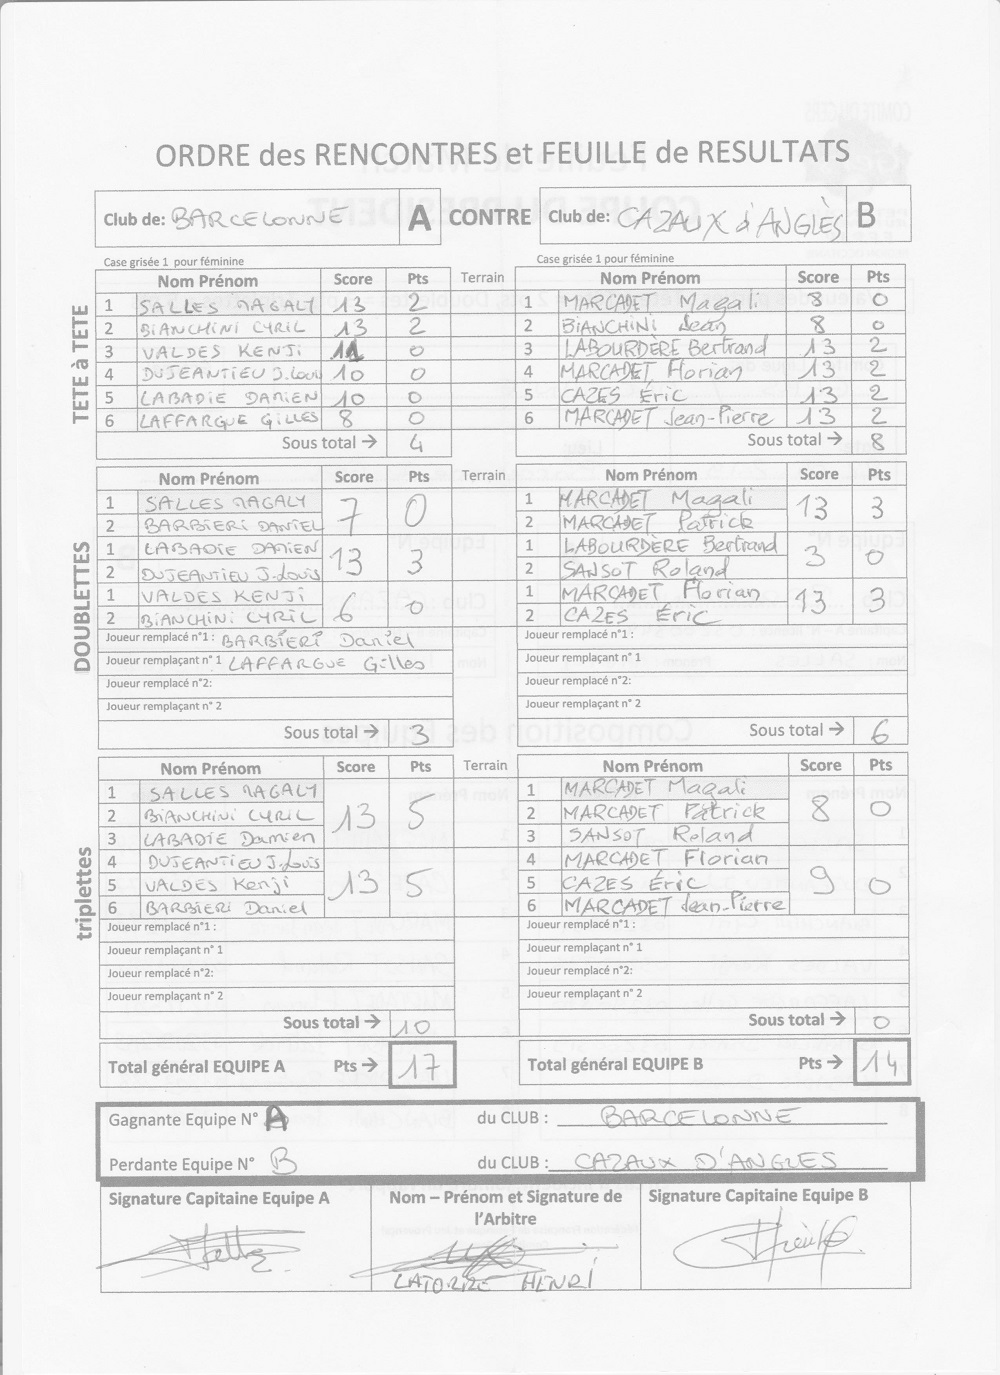 ORDRE des RENCONTRES et FEUILLE de RESULTATS
Club de: BARCELONNE A CONTRE Club de: CAZAUX d'ANGLÈS B
Case grisée 1 pour féminine Case grisée 1 pour féminine
Nom Prénom Score Pts Terrain Nom Prénom Score Pts
TETE à TETE
1 SALLES MAGALY 13 2 1 MARCADET Magali 8 0
2 BIANCHINI CYRIL 13 2 2 BIANCHINI Jean 8 0
3 VALDES KENJI 11 0 3 LABOURDÈRE Bertrand 13 2
4 DUJEANTIEU J.Louis 10 0 4 MARCADET Florian 13 2
5 LABADIE DAMIEN 10 0 5 CAZES Éric 13 2
6 LAFFARGUE GILLES 8 0 6 MARCADET Jean-Pierre 13 2
Sous total → 4 Sous total → 8
Nom Prénom Score Pts Terrain Nom Prénom Score Pts
DOUBLETTES
1 SALLES MAGALY 7 0 1 MARCADET Magali 13 3
2 BARBIERI DANIEL 2 MARCADET Patrick
1 LABADIE DAMIEN 13 3 1 LABOURDÈRE Bertrand 3 0
2 DUJEANTIEU J-Louis 2 SANSOT Roland
1 VALDES KENJI 6 0 1 MARCADET Florian 13 3
2 BIANCHINI CYRIL 2 CAZES Éric
Joueur remplacé n°1 : BARBIERI Daniel Joueur remplacé n°1 :
Joueur remplaçant n° 1 LAFFARGUE Gilles Joueur remplaçant n° 1
Joueur remplacé n°2: Joueur remplacé n°2:
Joueur remplaçant n° 2 Joueur remplaçant n° 2
Sous total → 3 Sous total → 6
Nom Prénom Score Pts Terrain Nom Prénom Score Pts
triplettes
1 SALLES MAGALY 13 5 1 MARCADET Magali 8 0
2 BIANCHINI CYRIL 2 MARCADET Patrick
3 LABADIE Damien 3 SANSOT Roland
4 DUJEANTIEU J.Louis 13 5 4 MARCADET Florian 9 0
5 VALDES Kenji 5 CAZES Éric
6 BARBIERI Daniel 6 MARCADET Jean-Pierre
Joueur remplacé n°1 : Joueur remplacé n°1 :
Joueur remplaçant n° 1 Joueur remplaçant n° 1
Joueur remplacé n°2: Joueur remplacé n°2:
Joueur remplaçant n° 2 Joueur remplaçant n° 2
Sous total → 10 Sous total → 0
Total général EQUIPE A Pts → 17 Total général EQUIPE B Pts → 14
Gagnante Equipe N° A du CLUB : BARCELONNE
Perdante Equipe N° B du CLUB : CAZAUX D'ANGLES
Signature Capitaine Equipe A Nom – Prénom et Signature de l'Arbitre Signature Capitaine Equipe B
HENRI